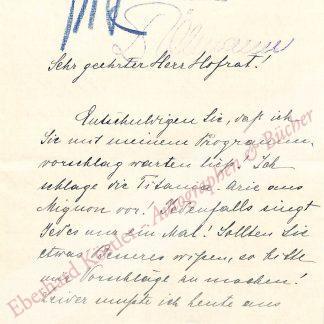 Sehr geehrter Herr Hofrat!
Entschuldigen Sie, daß ich
Sie mit meinem Programm,
vorschlag warten ließ. Ich
schlage die Titania-Arie aus
Mignon vor! Jedenfalls singt
Jedes nur ein Mal! Sollten Sie
etwas Anderes wissen, so bitte
mir Vorschläge zu machen!
Leider mußte ich heute aus
Eberhard Köstler Autographen & Bücher